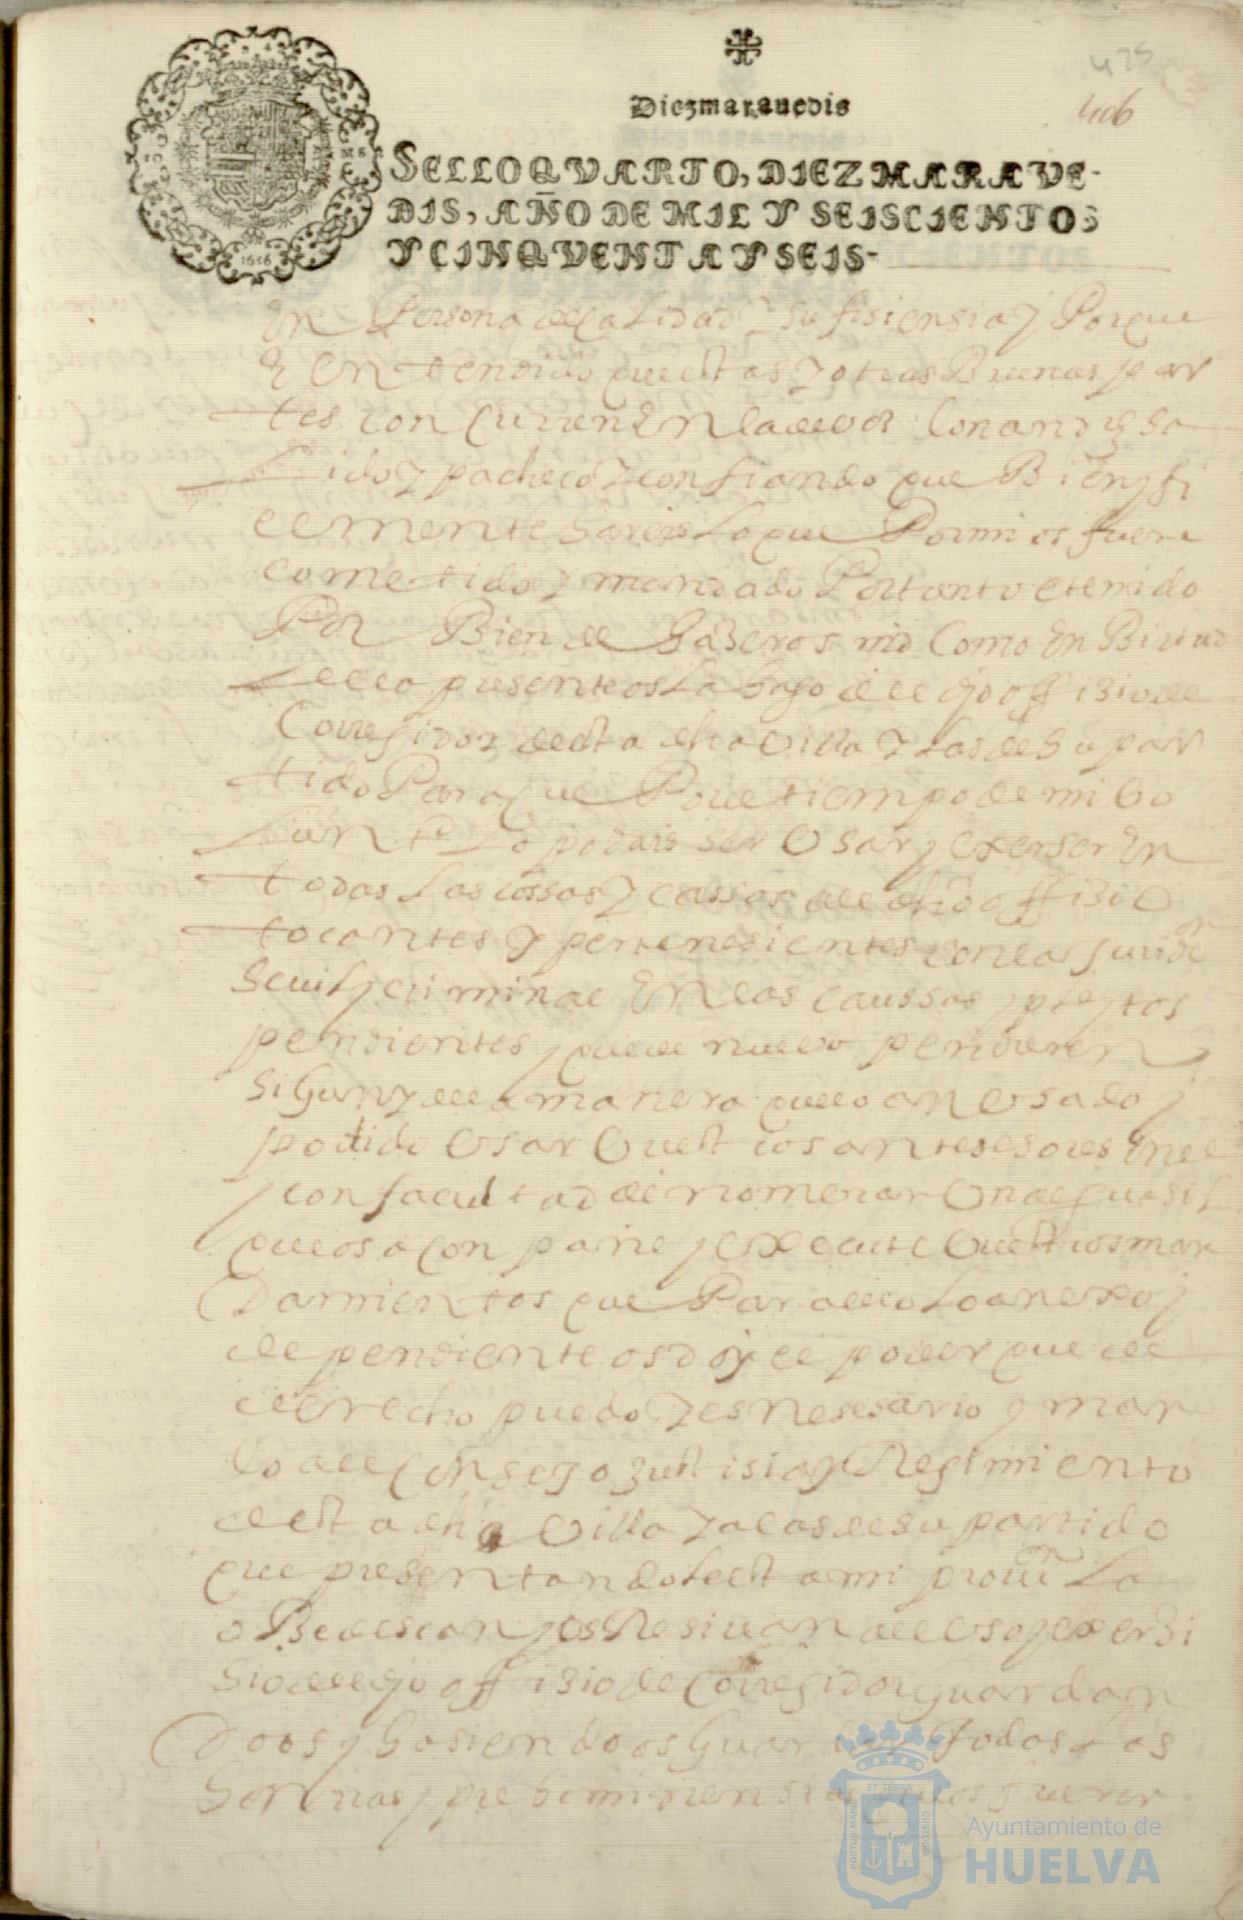 475
406
Diezmarauedis
SELLO QVARTO, DIEZ MARAVE-
DIS, AÑO DE MIL Y SEISCIENTOS
Y CINQVENTA Y SEIS-
1656
En Persona de calidad y sufisiensia y Porque
E entendido que estas y otras Buenas par
tes concurren En la de vos Don andres sa
lido y pacheco y confiando que Bien y fi
elmente hareis lo que Por mi os fuere
cometido y mandado Por tanto e tenido
Por Bien de haseros md Como En Birtud
de la presente os la hago del ofisio de
Corregidor desta dha villa y las de su par
tido Para que Por el tiempo de mi bo
luntd lo podais ser Usar y exerser En
todas las cossas y cassos al dho offisio
tocantes y pertenesientes con la Juridon
Seuil y criminal En las caussas y pleytos
pendientes y que de nuebo pendieren
Sigun y de la manera que lo an Usado y
podido Usar Vuestros antesesores En el
y con facultad de nombrar Un alguasil
que os acompañe y execute Vuestros man
Damientos que Para ello lo anexo y
dependiente os doy el poder que de
derecho puedo y es nesesario y man
do al Consejo Justisia y Regimiento
desta dha Villa y a las de su partido
que presentandoles esta mi prouion La
oBedescan y os Resiuan al Uso y exerSi
Sio del offisio de Corregidor guardan
Doos y hasiendoos guardar Todas las
honrras y preheminensias que os fueren
Ayuntamiento de
HUELVA
ET TERRÆ
PORTUS MARIS
CUSTODIA